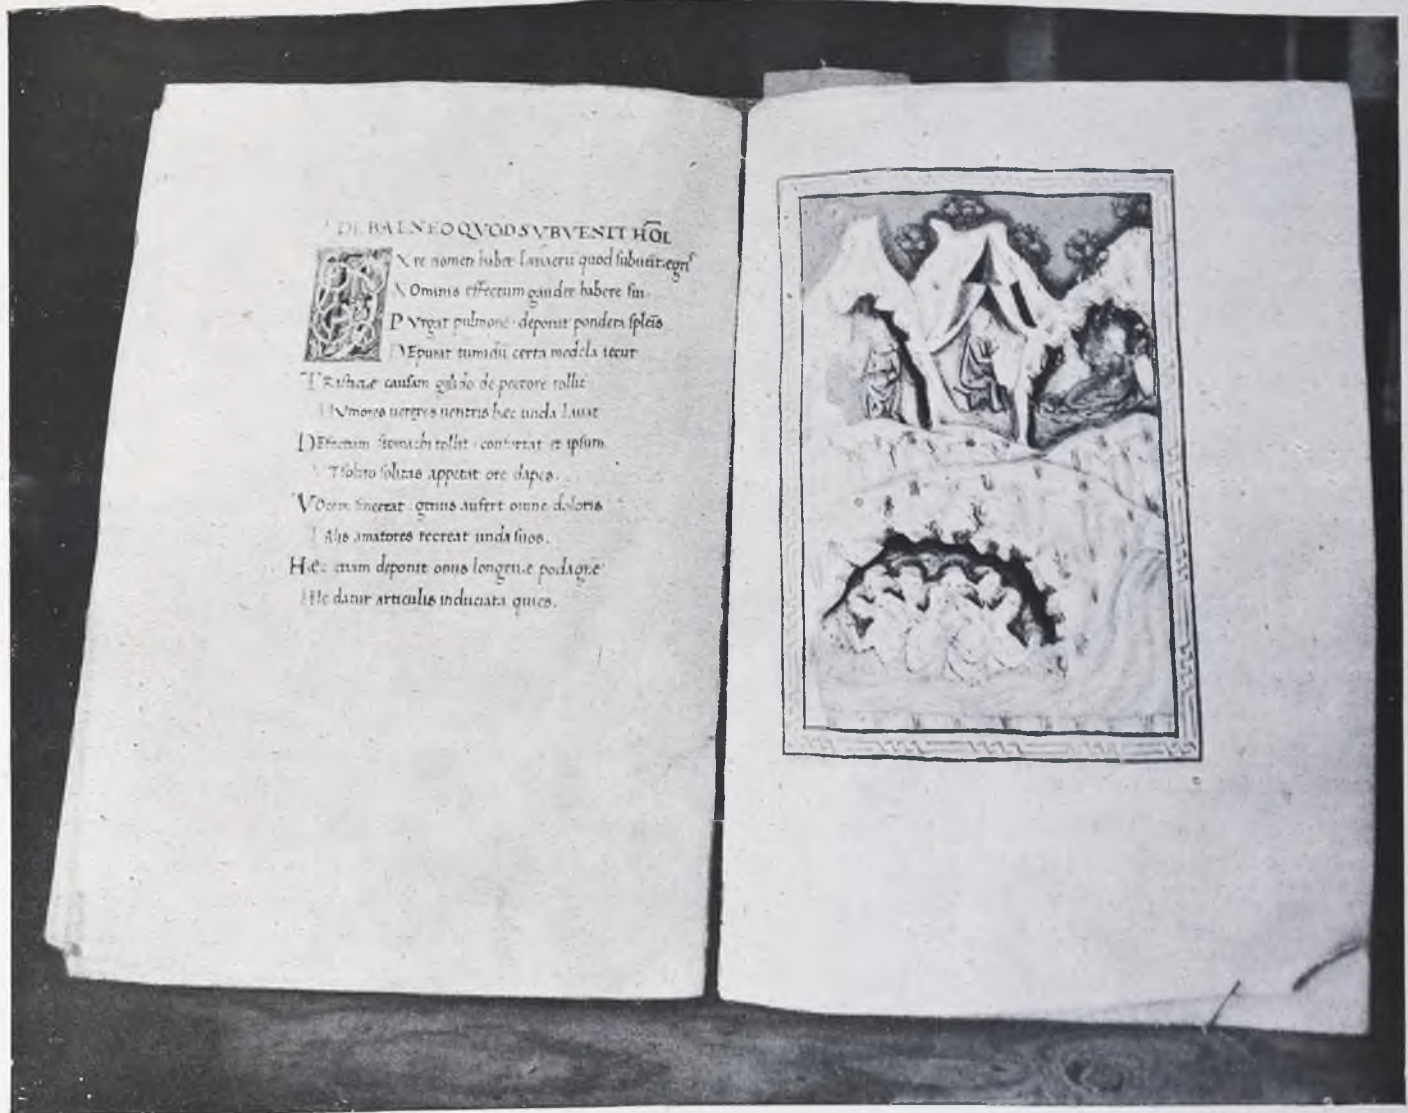 DE BALNEO QVOD SVBVENIT HOĪ
EX re nomen habet lauacrū quod subuēit egris
NOminis effectum gaudet habere sui.
PVrgat pulmonē · deponit pondera splenis
DEpurat tumidū certa medela iecur
TRistitiæ causam gelido de pectore tollit
HVmores ueteres uentris hæc unda lauat
DEfectum stomachi tollit · confortat et ipsum
VT solito solitas appetat ore dapes.
VOcem sincerat · genus aufert omne doloris
TAlis amatores recreat unda suos.
Hæc etiam deponit onus longeuæ podagræ
HIc datur articulis induciata quies.